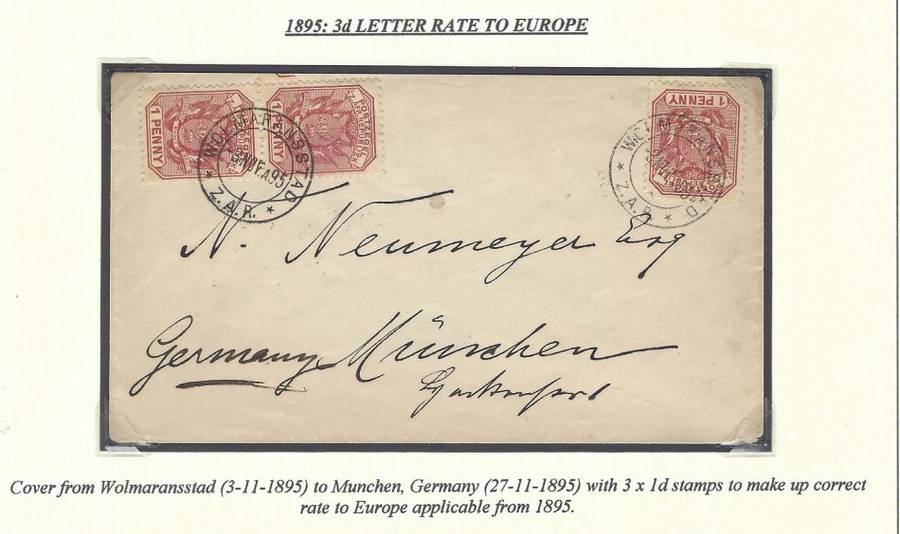 1895: 3d LETTER RATE TO EUROPE
1 PENNY
1 PENNY
1 PENNY
WOLMARANSSTAD
3 NOV 95
Z.A.R.
WOLMARANSSTAD
Z.A.R.
N. Neumeyer Esq
Germany München
Cover from Wolmaransstad (3-11-1895) to Munchen, Germany (27-11-1895) with 3 x 1d stamps to make up correct
rate to Europe applicable from 1895.